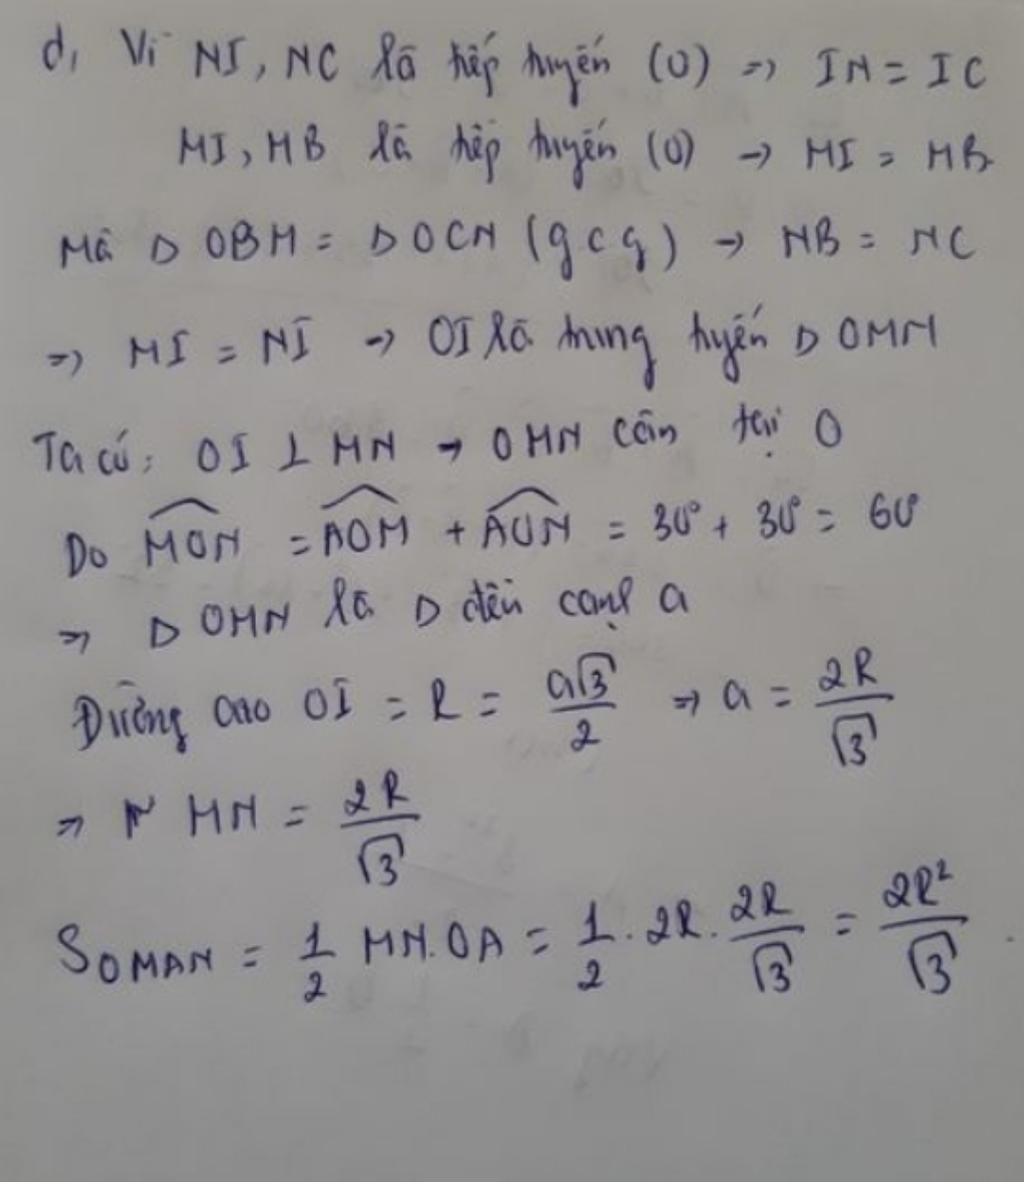 d, Vì NI, NC là tiếp tuyến (O) => IN = IC
MI, MB là tiếp tuyến (O) → MI = MB
Mà Δ OBM = Δ OCN (gcg) → MB = NC
=> MI = NI → OI là trung tuyến Δ OMN
Ta có: OI ⊥ MN → OMN cân tại O
Do \widehat{MON} = \widehat{AOM} + \widehat{AON} = 30° + 30° = 60°
=> Δ OMN là Δ đều cạnh a
Đường cao OI = R = \frac{a\sqrt{3}}{2} => a = \frac{2R}{\sqrt{3}}
=> MN = \frac{2R}{\sqrt{3}}
S_{OMAN} = \frac{1}{2} MN.OA = \frac{1}{2} . 2R . \frac{2R}{\sqrt{3}} = \frac{2R^2}{\sqrt{3}} .